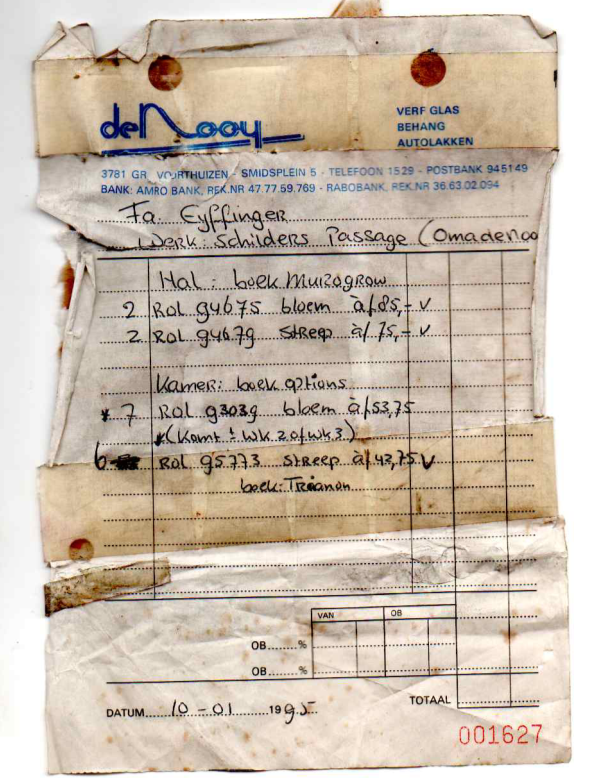 de Nooy
VERF GLAS
BEHANG
AUTOLAKKEN
3781 GR VOORTHUIZEN - SMIDSPLEIN 5 - TELEFOON 1529 - POSTBANK 945149
BANK: AMRO BANK, REK.NR 47.77.59.769 - RABOBANK, REK.NR 36.63.02.094
Fa. Eyffinger
Werk: Schilders Passage (Omadenoo
Hal: boek Murograow
2 Rol 94675 bloem à f 85,- v
2 Rol 94679 streep à f 75,- v
Kamer: boek options
* 7 Rol 93039 bloem à f 53,75
*(Komt ± wk 2 of wk 3)
6 Rol 95773 streep à f 42,75 v
boek: Trianon
VAN OB
OB.......%
OB.......%
TOTAAL
DATUM 10 - 01 1995
001627